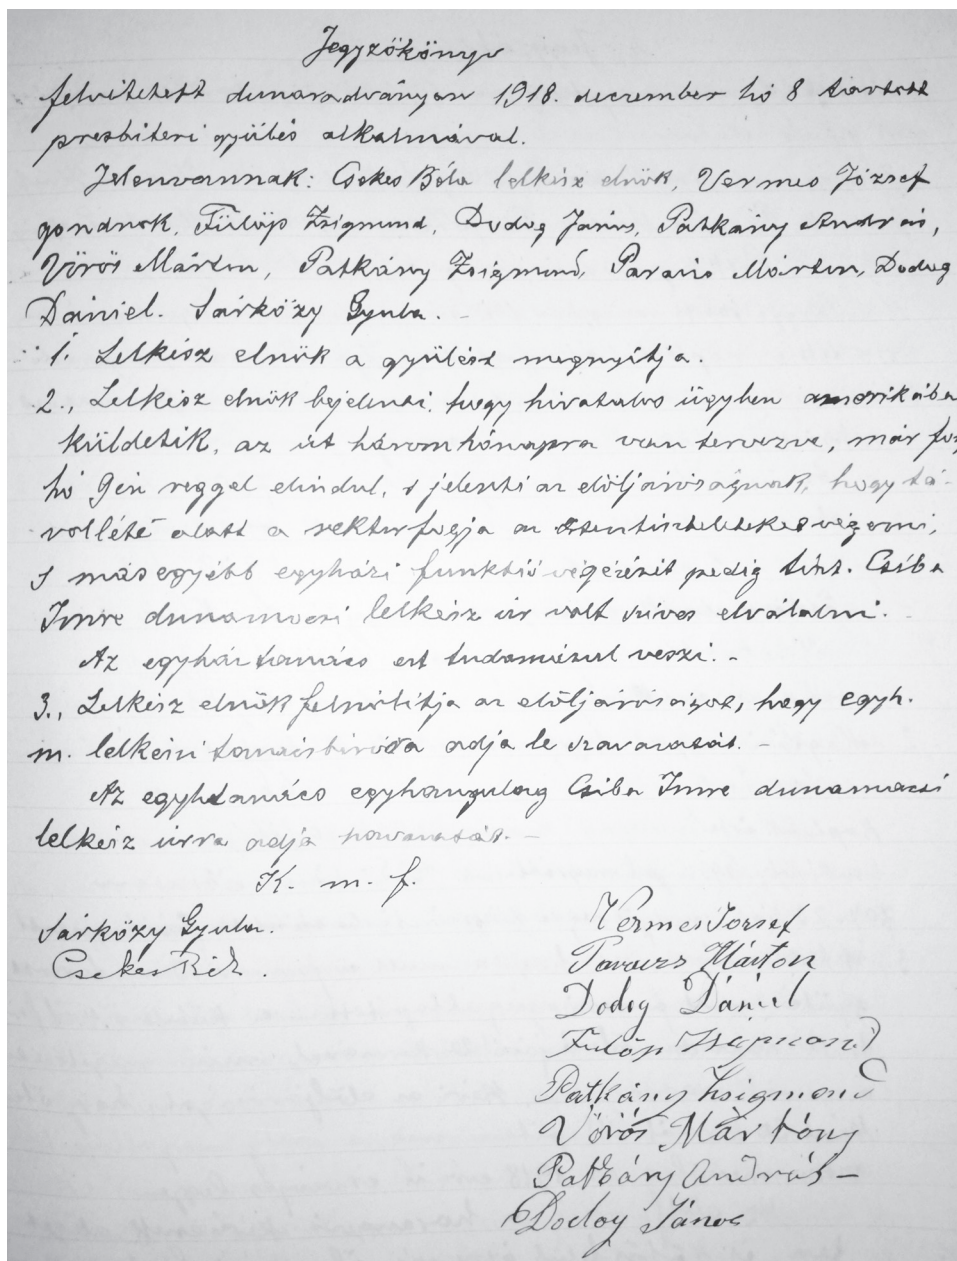 Jegyzőkönyv
felvitetett dunaradványon 1918. december hó 8 tartott
presbiteri gyűlés alkalmával.
Jelenvannak: Csekes Béla lelkész elnök, Vermes József
gondnok, Fülöp Zsigmond, Dodog János, Patkány András,
Vörös Márton, Patkány Zsigmond, Paracs Márton, Dodog
Dániel. Sárközy Gyula.
1. Lelkész elnök a gyűlést megnyitja.
2., Lelkész elnök bejelenti, hogy hivatalos ügyben amerikába
küldetik, az út három hónapra van tervezve, már foly
hó 9én reggel elindul, s jelenti az elöljáróságnak, hogy tá-
volléte alatt a rektor fogja az istentiszteleteket végezni,
s más egyébb egyházi funkció végézését pedig tisz. Csiba
Imre dunamocsi lelkész úr volt szíves elválalni.
Az egyháztanács ezt tudomásul veszi. -
3., Lelkész elnök felszólítja az elöljáróságot, hogy egyh.
m. lelkészi tanácsbíróra adja le szavazatát. -
Az egyhtanács egyhangulag Csiba Imre dunamocsi
lelkész úrra adja szavazatát. -
K. m. f.
Sárközy Gyula.
Csekes Béla.
Vermes József
Paracs Márton
Dodog Dániel
Fülöp Zsigmond
Patkány Zsigmond
Vörös Mártony
Patkány András -
Dodog János